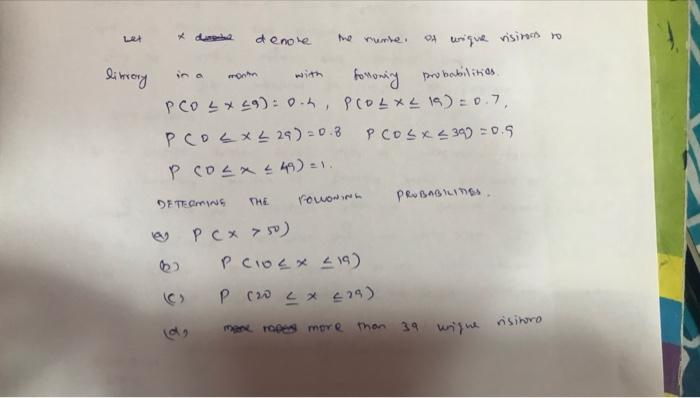 Let x denote the number of unique visitors to
library in a month with following probabilities.
P(0 ≤ x ≤ 9) = 0.4, P(0 ≤ x ≤ 19) = 0.7,
P(0 ≤ x ≤ 29) = 0.8 P(0 ≤ x ≤ 39) = 0.9
P(0 ≤ x ≤ 49) = 1.
DETERMINE THE FOLLOWING PROBABILITIES.
(a) P(x > 50)
(b) P(10 ≤ x ≤ 19)
(c) P(20 ≤ x ≤ 29)
(d) more than 39 unique visitors